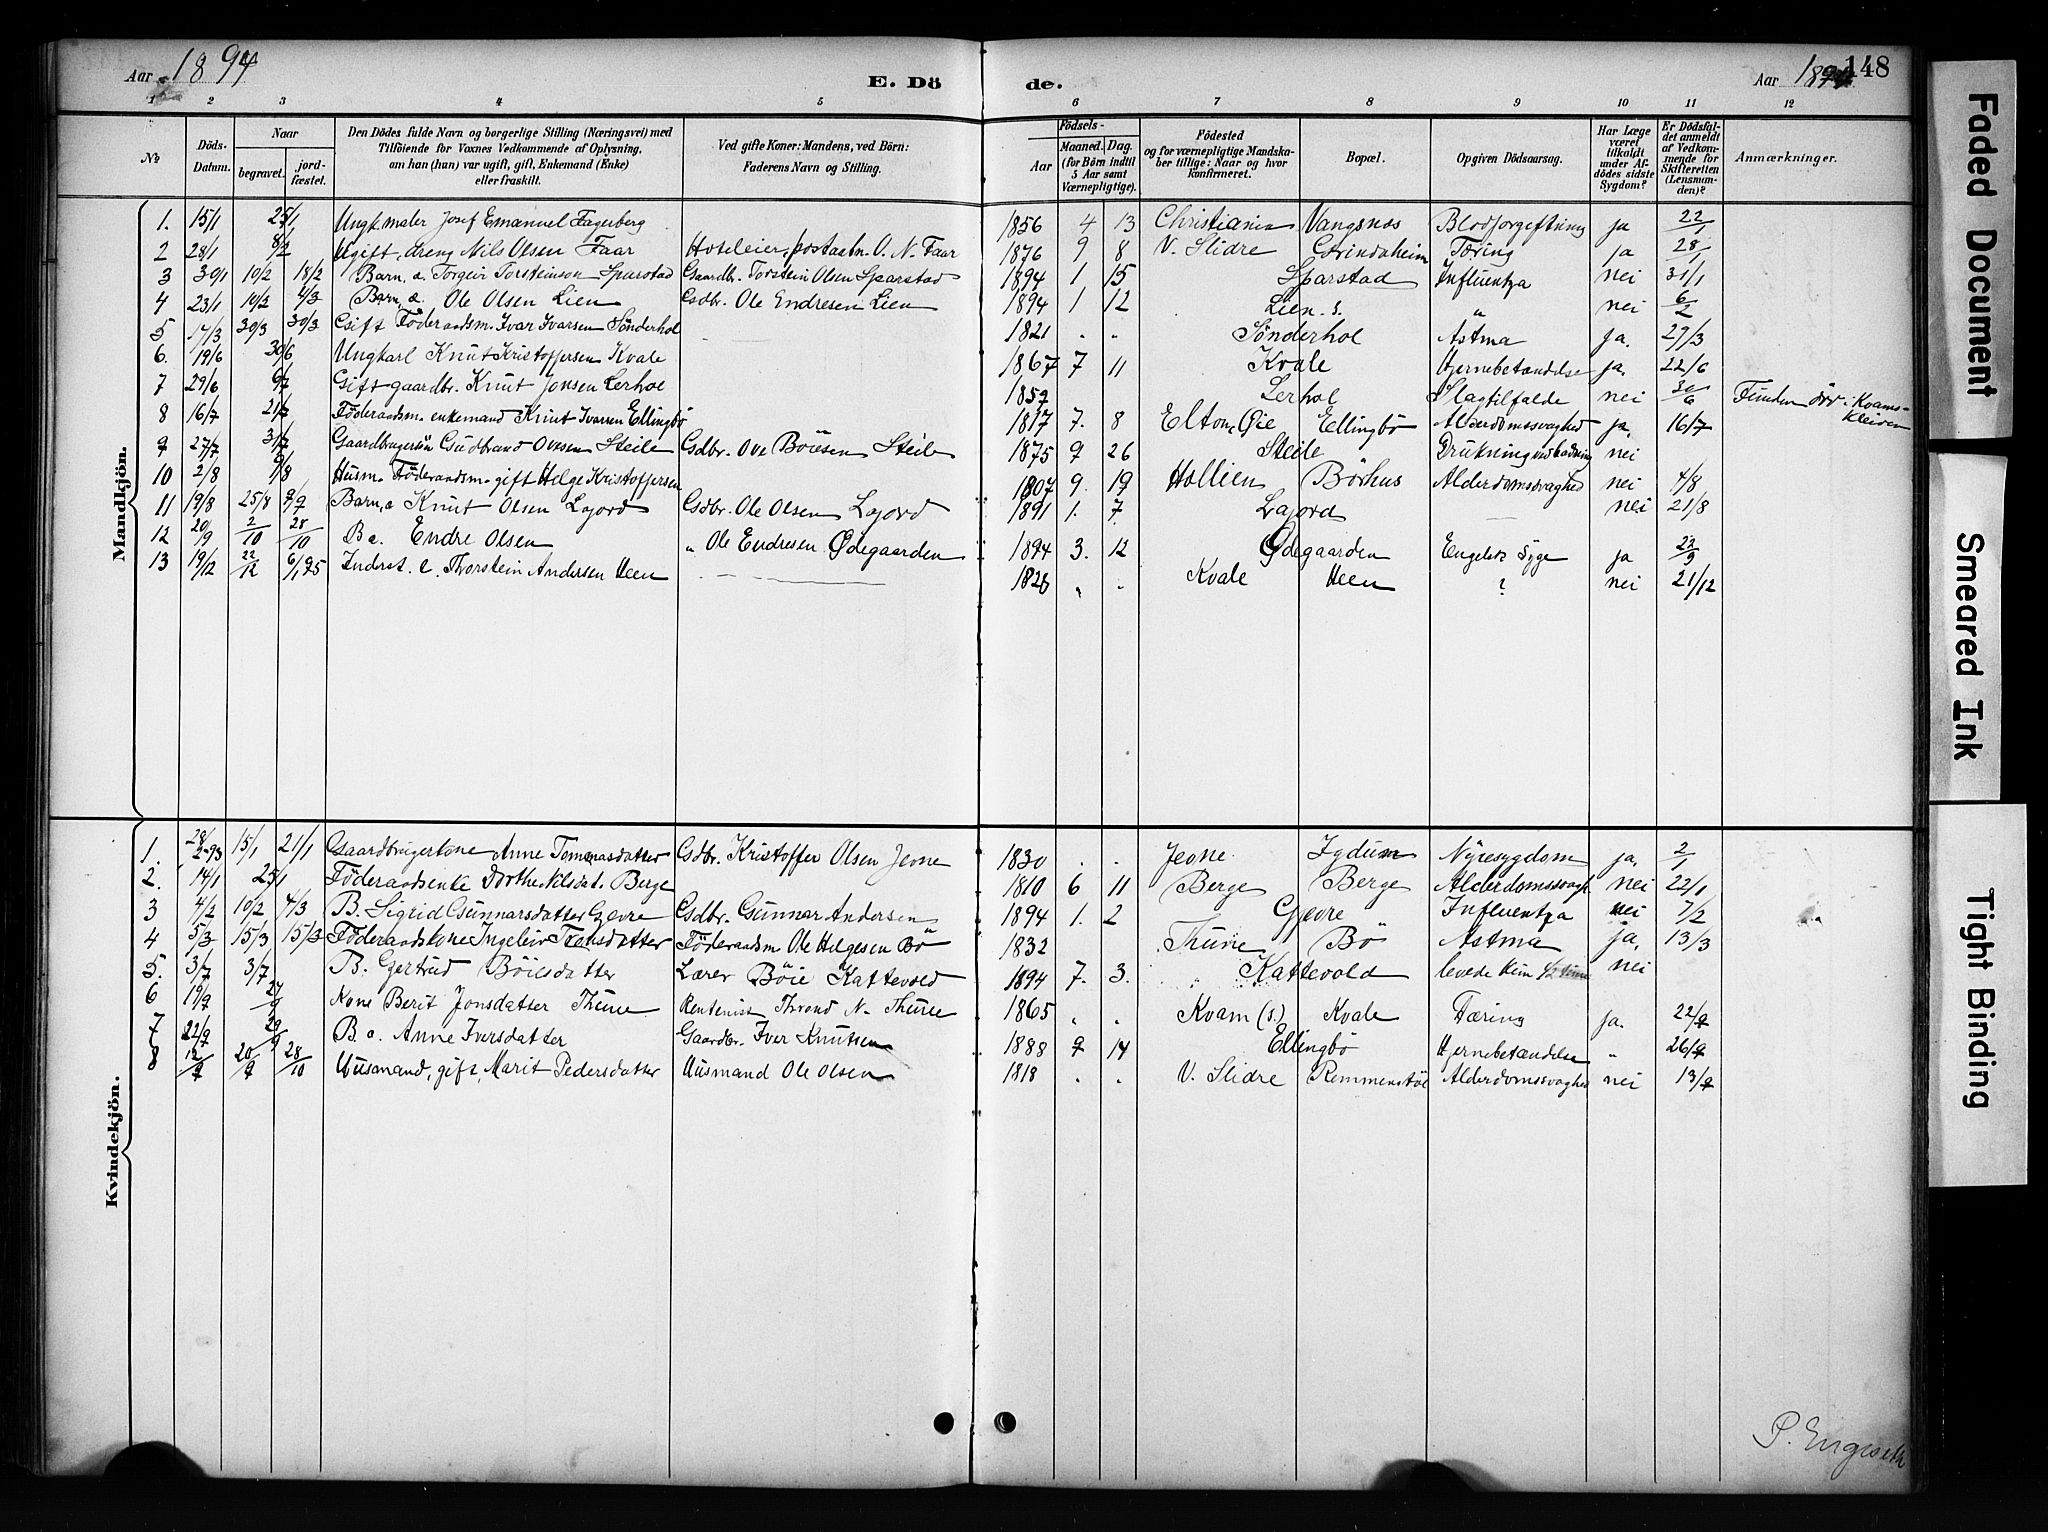 Aar 1894 E. Dö de. Aar 1894 148
1 2 3 4 5 6 7 8 9 10 11 12
No Döds-Datum. Naar begravet. jordfæstet. Den Dödes fulde Navn og borgerlige Stilling (Næringsvei) med Tilföiende for Voxnes Vedkommende af Oplysning, om han (hun) var ugift, gift, Enkemand (Enke) eller fraskilt. Ved gifte Koner: Mandens, ved Börn: Faderens Navn og Stilling. Födsels- Aar Maaned. Dag. (for Börn indtil 5 Aar samt Værnepligtige). Födested og for værnepligtige Mandskaber tillige: Naar og hvor konfirmeret. Bopæl. Opgiven Dödsaarsag. Har Læge været tilkaldt under Afdödes sidste Sygdom? Er Dödsfaldet anmeldt af Vedkommende for Skifteretten (Lensmanden)? Anmærkninger.
Mandkjön.
1. 15/1 25/1 Ungk. maler Josef Emanuel Fagerberg 1856 4 13 Christiania Vangsnes Blodforgiftning ja 22/1
2 28/1 8/2 Ugift, dreng Nils Olsen Faar Hoteleier, postaabn. O. N. Faar 1876 9 8 V. Slidre Grindaheim Tæring ja 28/1
3 30/1 10/2 18/2 Barn, æ. Torgeir Torsteinson Sparstad Gaardbr. Torstein Olsen Sparstad 1894 1 15 Sparstad Influentza nei 31/1
4 23/1 10/2 4/3 Barn, æ. Ole Olsen Lien Gdbr. Ole Endresen Lien 1894 1 12 Lien. s. " nei 6/2
5 17/3 30/3 30/3 Gift Föderaadsm. Ivar Ivarsen Sönderhol 1821 . . Sönderhol Astma ja. 27/3
6. 19/6 30/6 Ungkarl Knut Kristoffersen Kvale 1867 7 11 Kvale Hjernebetændelse ja. 22/6
7 29/6 9/7 Gift gaardbr. Knut Jonsen Lerhol 1859 Lerhol Slagtilfælde nei 30/6 Funden död i Kvamskleiven
8 16/7 21/7 Föderaadsm. enkemand Knut Ivarsen Ellingbö 1817 7. 8 Elton, Øie Ellingbö Alderdomssvaghed ja. 16/7
9 27/7 31/7 Gaardbrugersön Gudbrand Ovesen Steile Gdbr. Ove Böiesen Steile 1875 9 26 Steile Drukning ved badning nei
10 2/8 9/8 Husm. Föderaadsm. gift Helge Kristoffersen 1807 9. 19 Hollien Börhus Alderdomssvaghed nei 4/8
11 19/8 25/8 9/9 Barn, æ Knut Olsen Lajord Gdbr. Ole Olsen Lajord 1891 1. 7. Lajord nei 21/8
12 20/9 2/10 28/10 B æ. Endre Olsen " Ole Endresen Ødegaarden 1894 3. 12 Ødegaarden Engelsk Syge ja 22/9
13 19/12 22/12 6/1 95 Inderst. e. Thorstein Andersen Heen 1826 " . Kvale Heen ? nei 21/12
Kvindekjön.
1. 15/1 21/1 Gaardbrugerkone Anne Tomasdatter Gdbr. Kristoffer Olsen Jevne 1830 . . Jevne. Nyresygdom ja. 2/1
2. 14/1 25/1 Föderaadsenke Dorthe Nilsdat. Berge 1810 6 11 Berge Berge Alderdomssvagh. nei 22/1
3 4/2 10/2 4/3 B. Sigrid Gunnarsdatter Gjevre Gdbr. Gunnar Andersen 1894 1. 2 Gjevre Influentza nei 7/2
4 5/3 15/3 15/3 Föderaadskone Ingeleiv Trondsdatter Föderaadsm Ole Helgesen Bö 1832 . Thune Bö Astma ja. 13/3
5. 3/7 3/7 B. Gertrud Böiesdatter Lærer Böie Kattevold 1894 7. 3. Kattevold levede kun 1/2 time nei
6 19/9 27/9 Kone Berit Jonsdatter Thune Rentenist Thrond N. Thune 1865 . . Kvam (s.) Kvale Tæring ja. 22/9
7 22/9 29/9 B. æ. Anne Iversdatter Gaardbr. Iver Knutsen 1888 9 14 Ellingbö Hjernebetændelse " 26/9
8 12/9 20/9 28/10 Husmand, gift, Marit Pedersdatter Husmand Ole Olsen 1818 . . V. Slidre Remmenstöl Alderdomssvaghed nei 13/9
P. Engeseth
Faded Document
Smeared Ink
Tight Binding